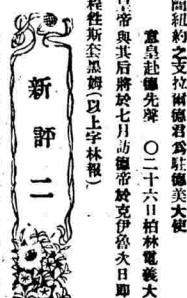 間紐約之艾拉德君爲駐德美大使
意皇赴德先聲　〇二十六日柏林電義大
皇帝與其后將於七月訪德帝於克伊魯次日卽
程往斯套黑姆（以上字林報）
新評二